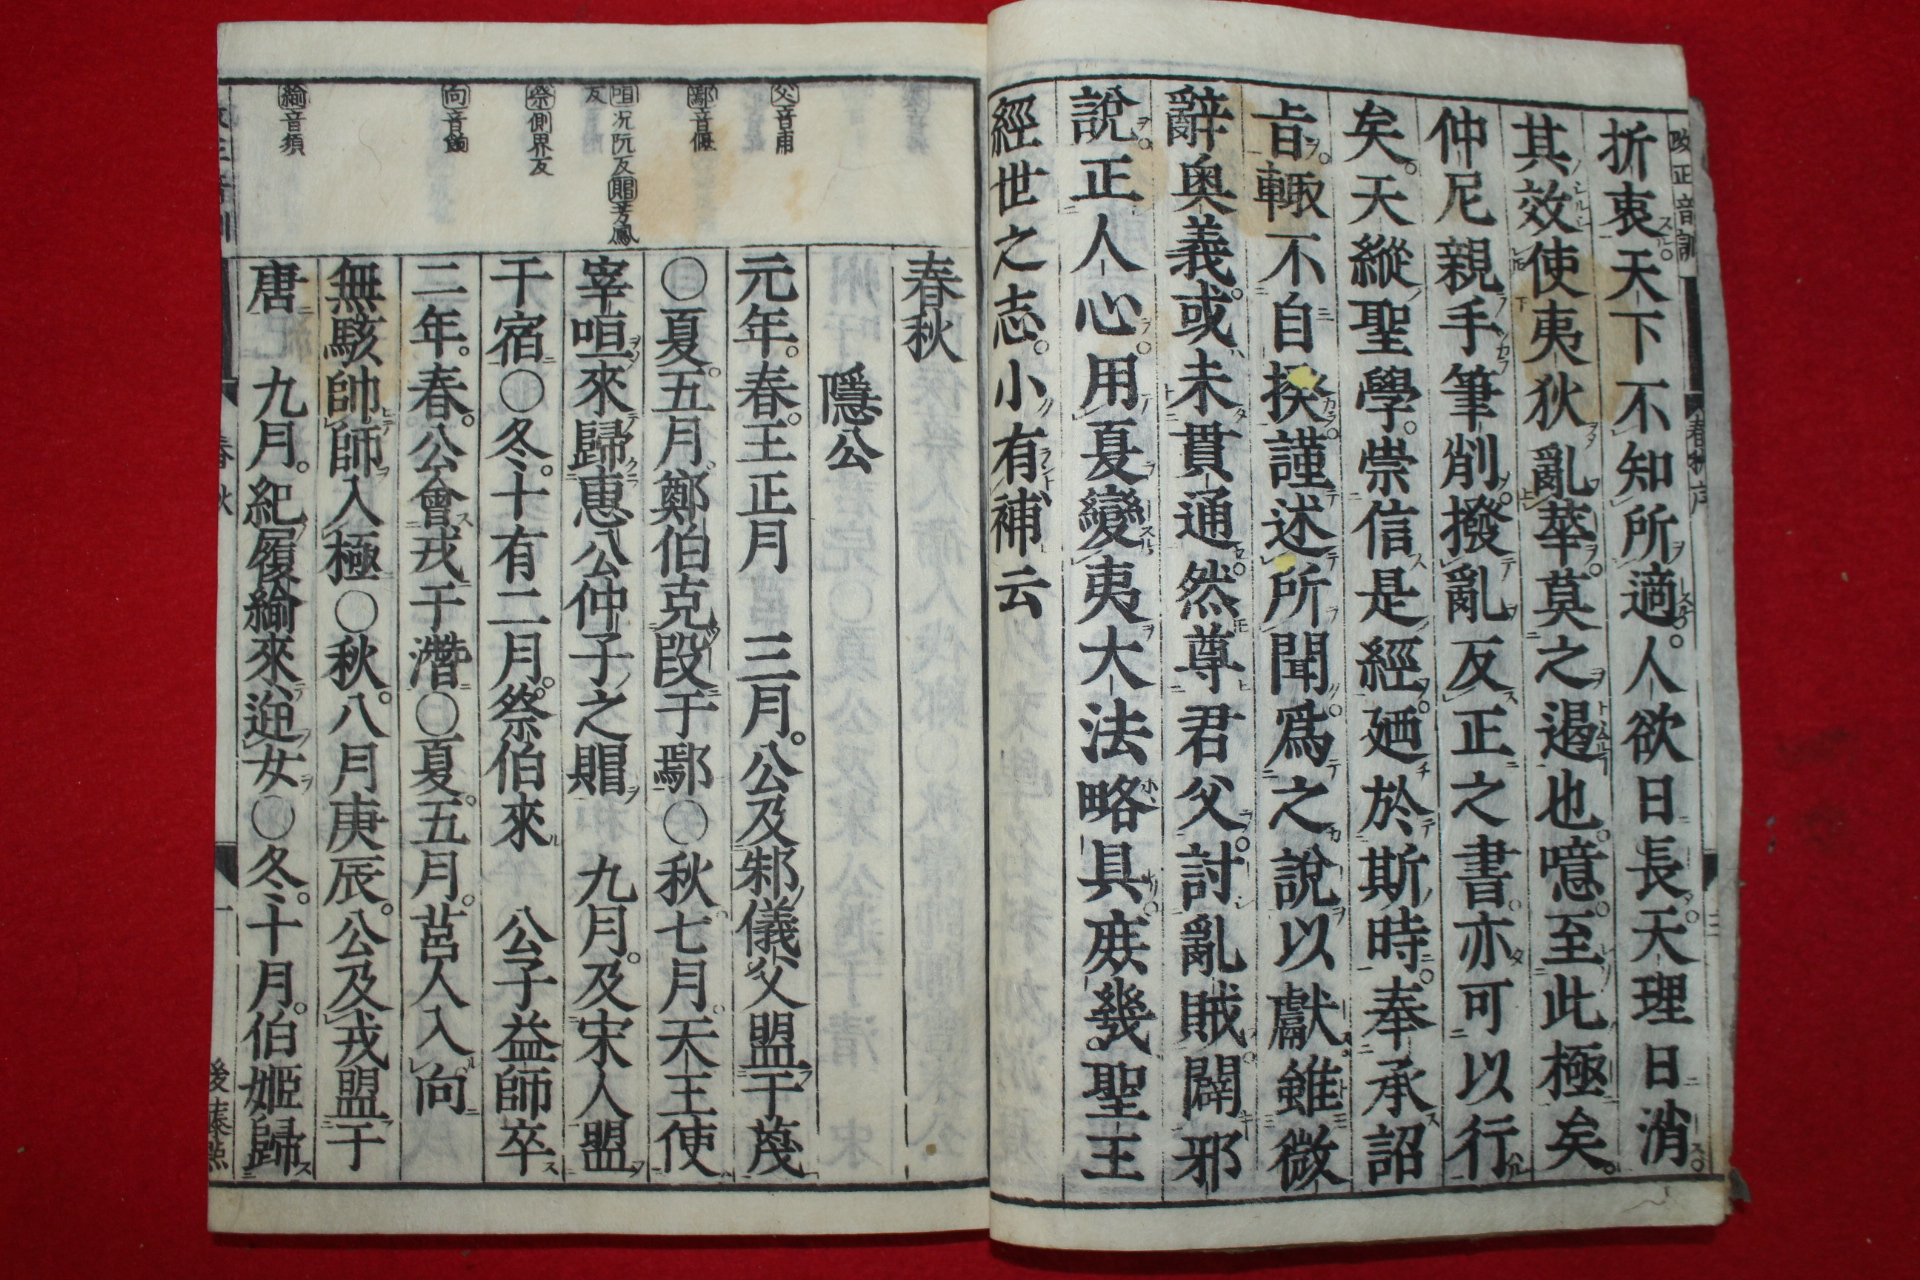 改正音訓
春秋序
三
折衷天下不知所適人欲日長天理日消
其效使夷狄亂華莫之遏也噫至此極矣
仲尼親手筆削撥亂反正之書亦可以行
矣天縱聖學崇信是經廼於斯時奉承詔
旨輙不自揆謹述所聞爲之說以獻雖微
辭奥義或未貫通然尊君父討亂賊闢邪
說正人心用夏變夷大法略具庻幾聖王
經世之志小有補云
父音甫
鄢音偃
咺况阮反賵芳鳳
反
祭側界反
向音餉
綸音須
春秋
隱公
元年春王正月 三月公及邾儀父盟于蔑
〇夏五月鄭伯克段于鄢〇秋七月天王使
宰咺來歸惠公仲子之賵 九月及宋人盟
于宿〇冬十有二月祭伯來 公子益師卒
二年春公會戎于潛〇夏五月莒人入向
無駭帥師入極〇秋八月庚辰公及戎盟于
唐 九月紀履綸來逆女〇冬十月伯姬歸
春秋
一